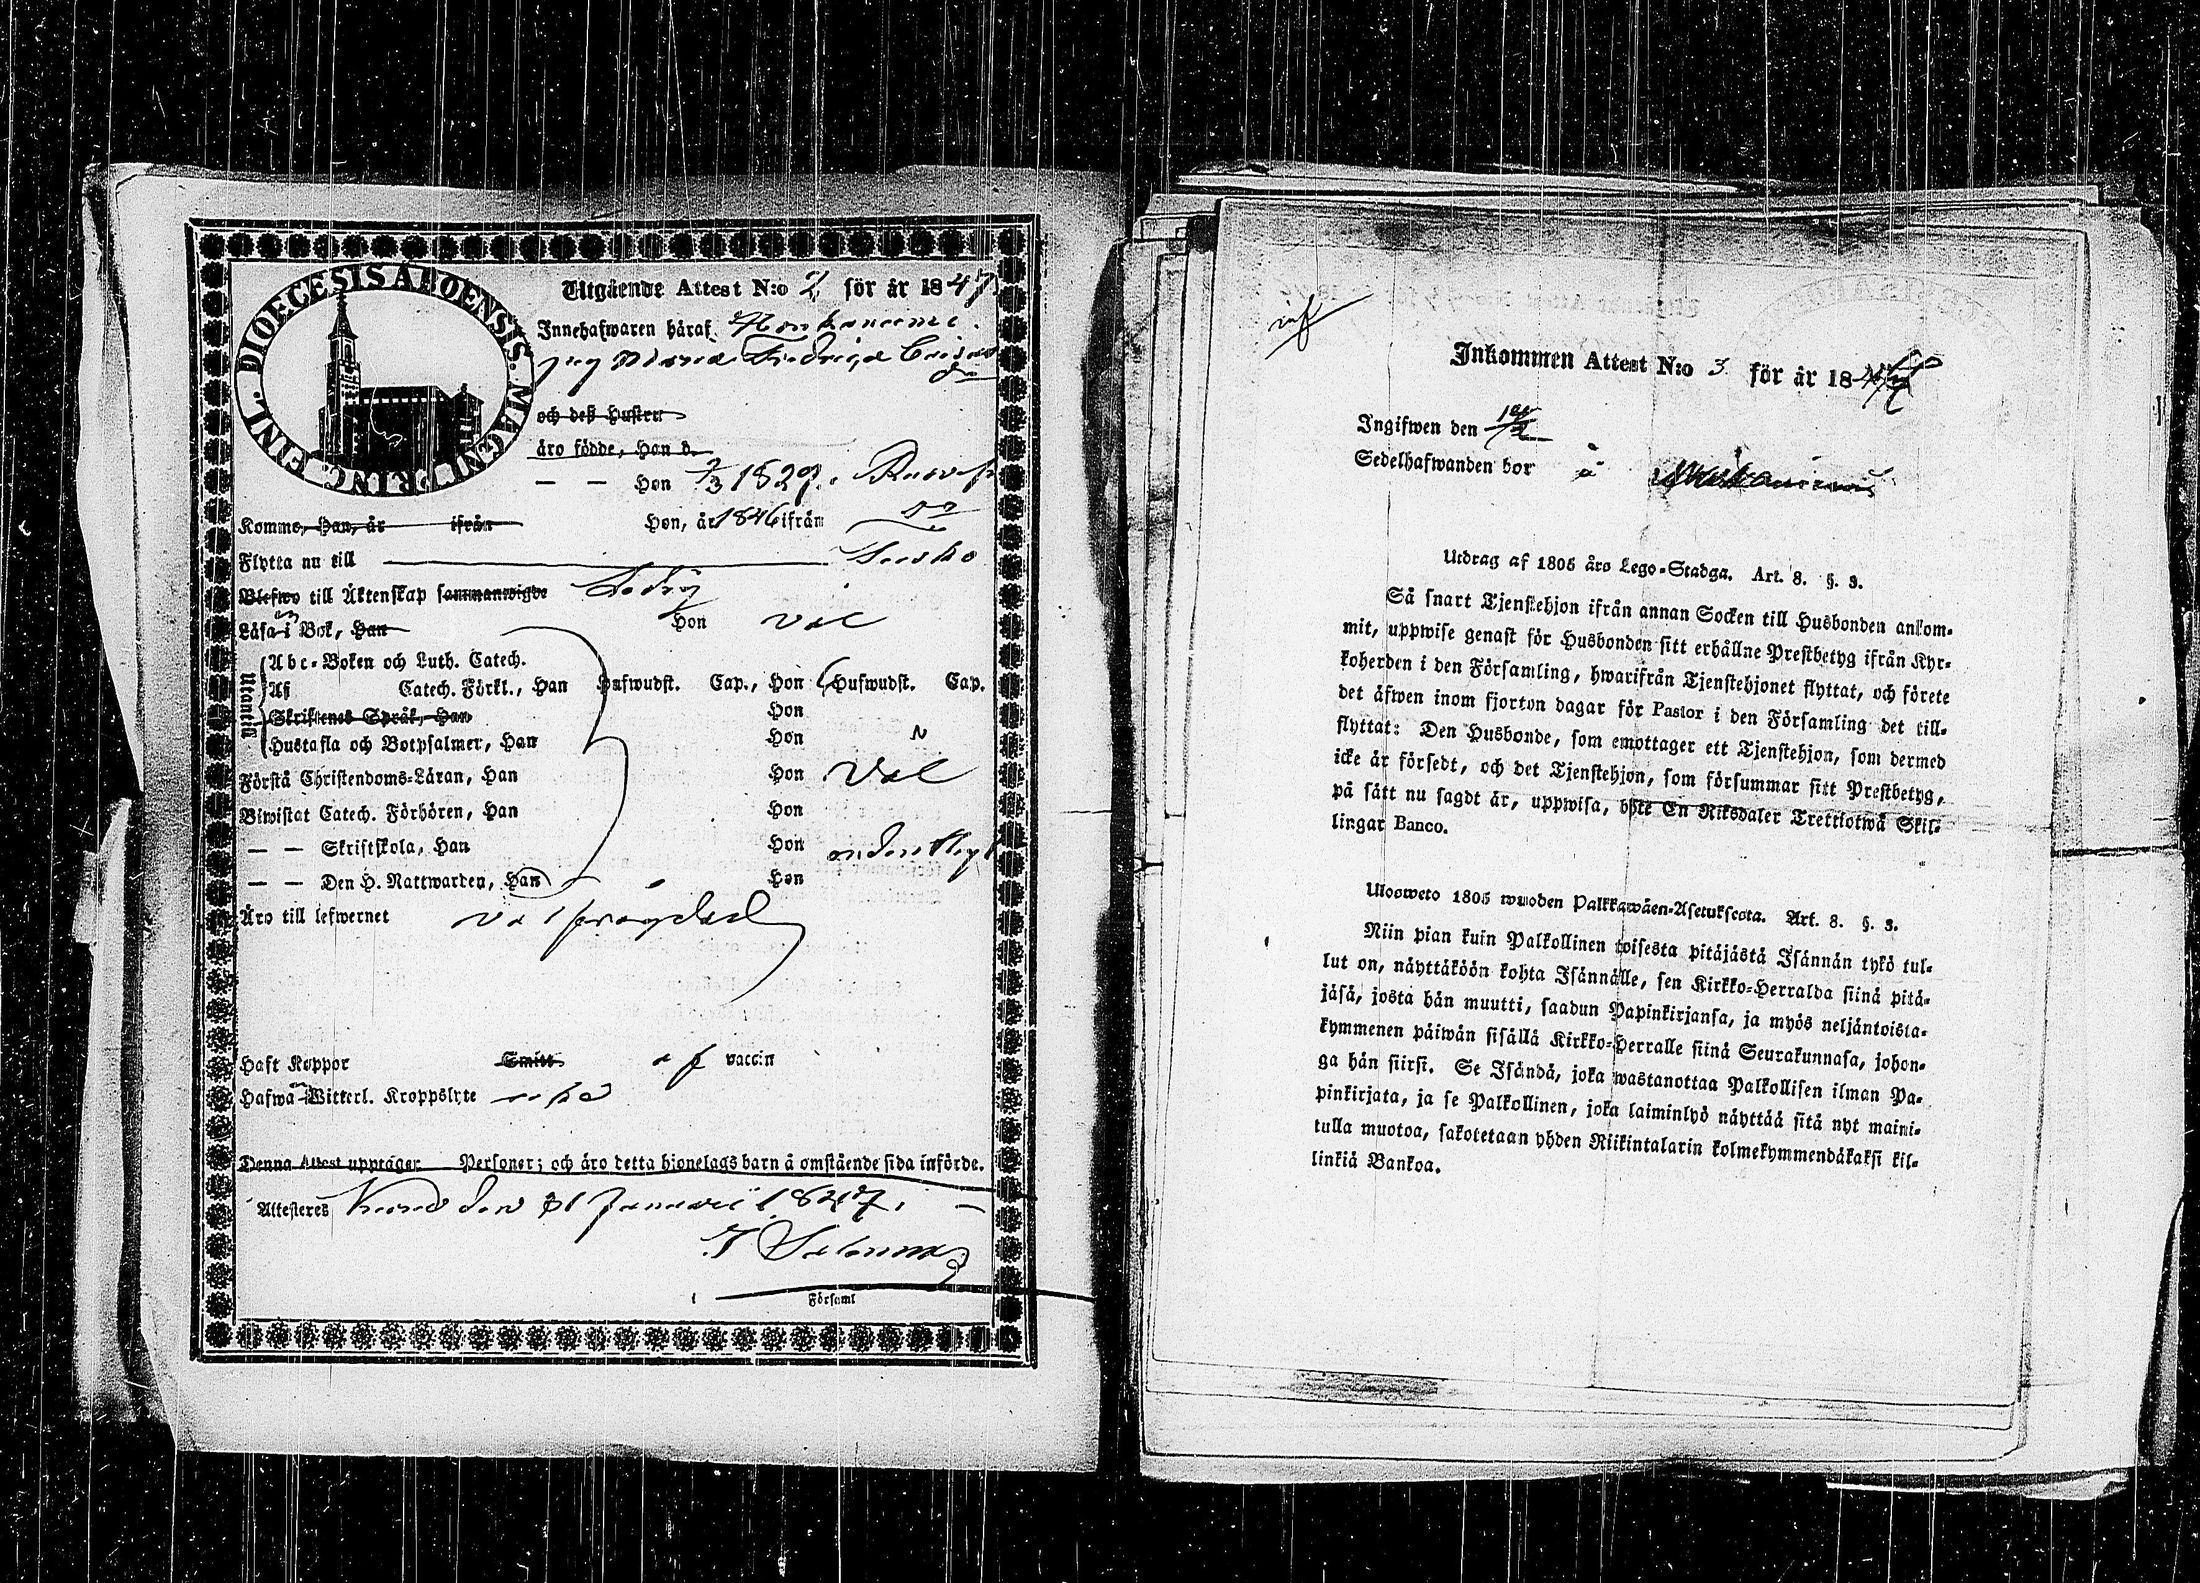 DIOECESIS ABOENSIS. MAGNI PRINC. FINL.
Utgående Attest N:o 2 för år 1847.
Innehafwaren häraf
Fredrica
och dess hustru
äro födde, Han d.
— — Hon 2/3 1829.
Komme, Han, år ifrån Hon, år 1846 ifrån
Flytta nu till
Blefwo till Äktenskap sammanwigde Ledig
Läsa i Bok, Han Hon väl
Utantill
Abc-Boken och Luth. Catech.
Af Catech. Förkl., Han Hufwudst. Cap., Hon 6 Hufwudst. Cap.
Skriftenes Språk, Han Hon
Hustafla och Botpsalmer, Han Hon
Förstå Christendoms-Läran, Han Hon Väl
Biwistat Catech. Förhören, Han Hon
— — Skriftskola, Han Hon ordentligt
— — Den H. Nattwarden, Han Hon
Äro till lefwernet väl frägdad
Haft Koppor Smitt af vaccin
Hafwa Witterl. Kroppslyte icke
Denna Attest upptager Personer; och äro detta hjonelags barn å omstående sida införde.
Attesteras den 31 Januari 1847.
Församl
Inkommen Attest N:o 3 för år 184
Ingifwen den
Sedelhafwanden bor å
Utdrag af 1805 års Lego-Stadga. Art. 8. §. 3.
Så snart Tjenstehjon ifrån annan Socken till Husbonden ankom-
mit, uppwise genast för Husbonden sitt erhållne Prestbetyg ifrån Kyr-
koherden i den Församling, hwarifrån Tjenstehjonet flyttat, och förete
det äfwen inom fjorton dagar för Pastor i den Församling det till-
flyttat: Den Husbonde, som emottager ett Tjenstehjon, som dermed
icke är försedt, och det Tjenstehjon, som försummar sitt Prestbetyg,
på sätt nu sagdt är, uppwisa, böte En Riksdaler Trettiotwå Skil-
lingar Banco.
Ulosweto 1805 wuoden Palkkawäen-Asetuksesta. Art. 8. §. 3.
Niin pian kuin Palkollinen toisesta pitäjästä Isännän tykö tul-
lut on, näyttäköön kohta Isännälle, sen Kirkko-Herralda siinä pitä-
jäsä, josta hän muutti, saadun Papinkirjansa, ja myös neljäntoista-
kymmenen päiwän sisällä Kirkko-Herralle siinä Seurakunnasa, johon-
ga hän siirsi. Se Isändä, joka wastanottaa Palkollisen ilman Pa-
pinkirjata, ja se Palkollinen, joka laiminlyö näyttää sitä nyt maini-
tulla muotoa, sakotetaan yhden Riikintalarin kolmekymmendäkaksi kil-
linkiä Bankoa.